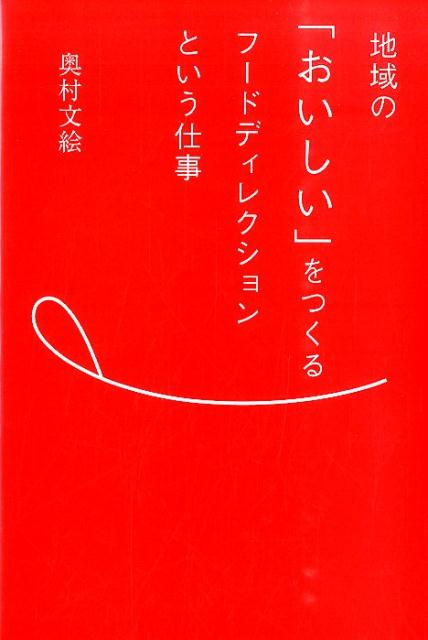 地域の
「おいしい」をつくる
フードディレクション
という仕事
奥村文絵